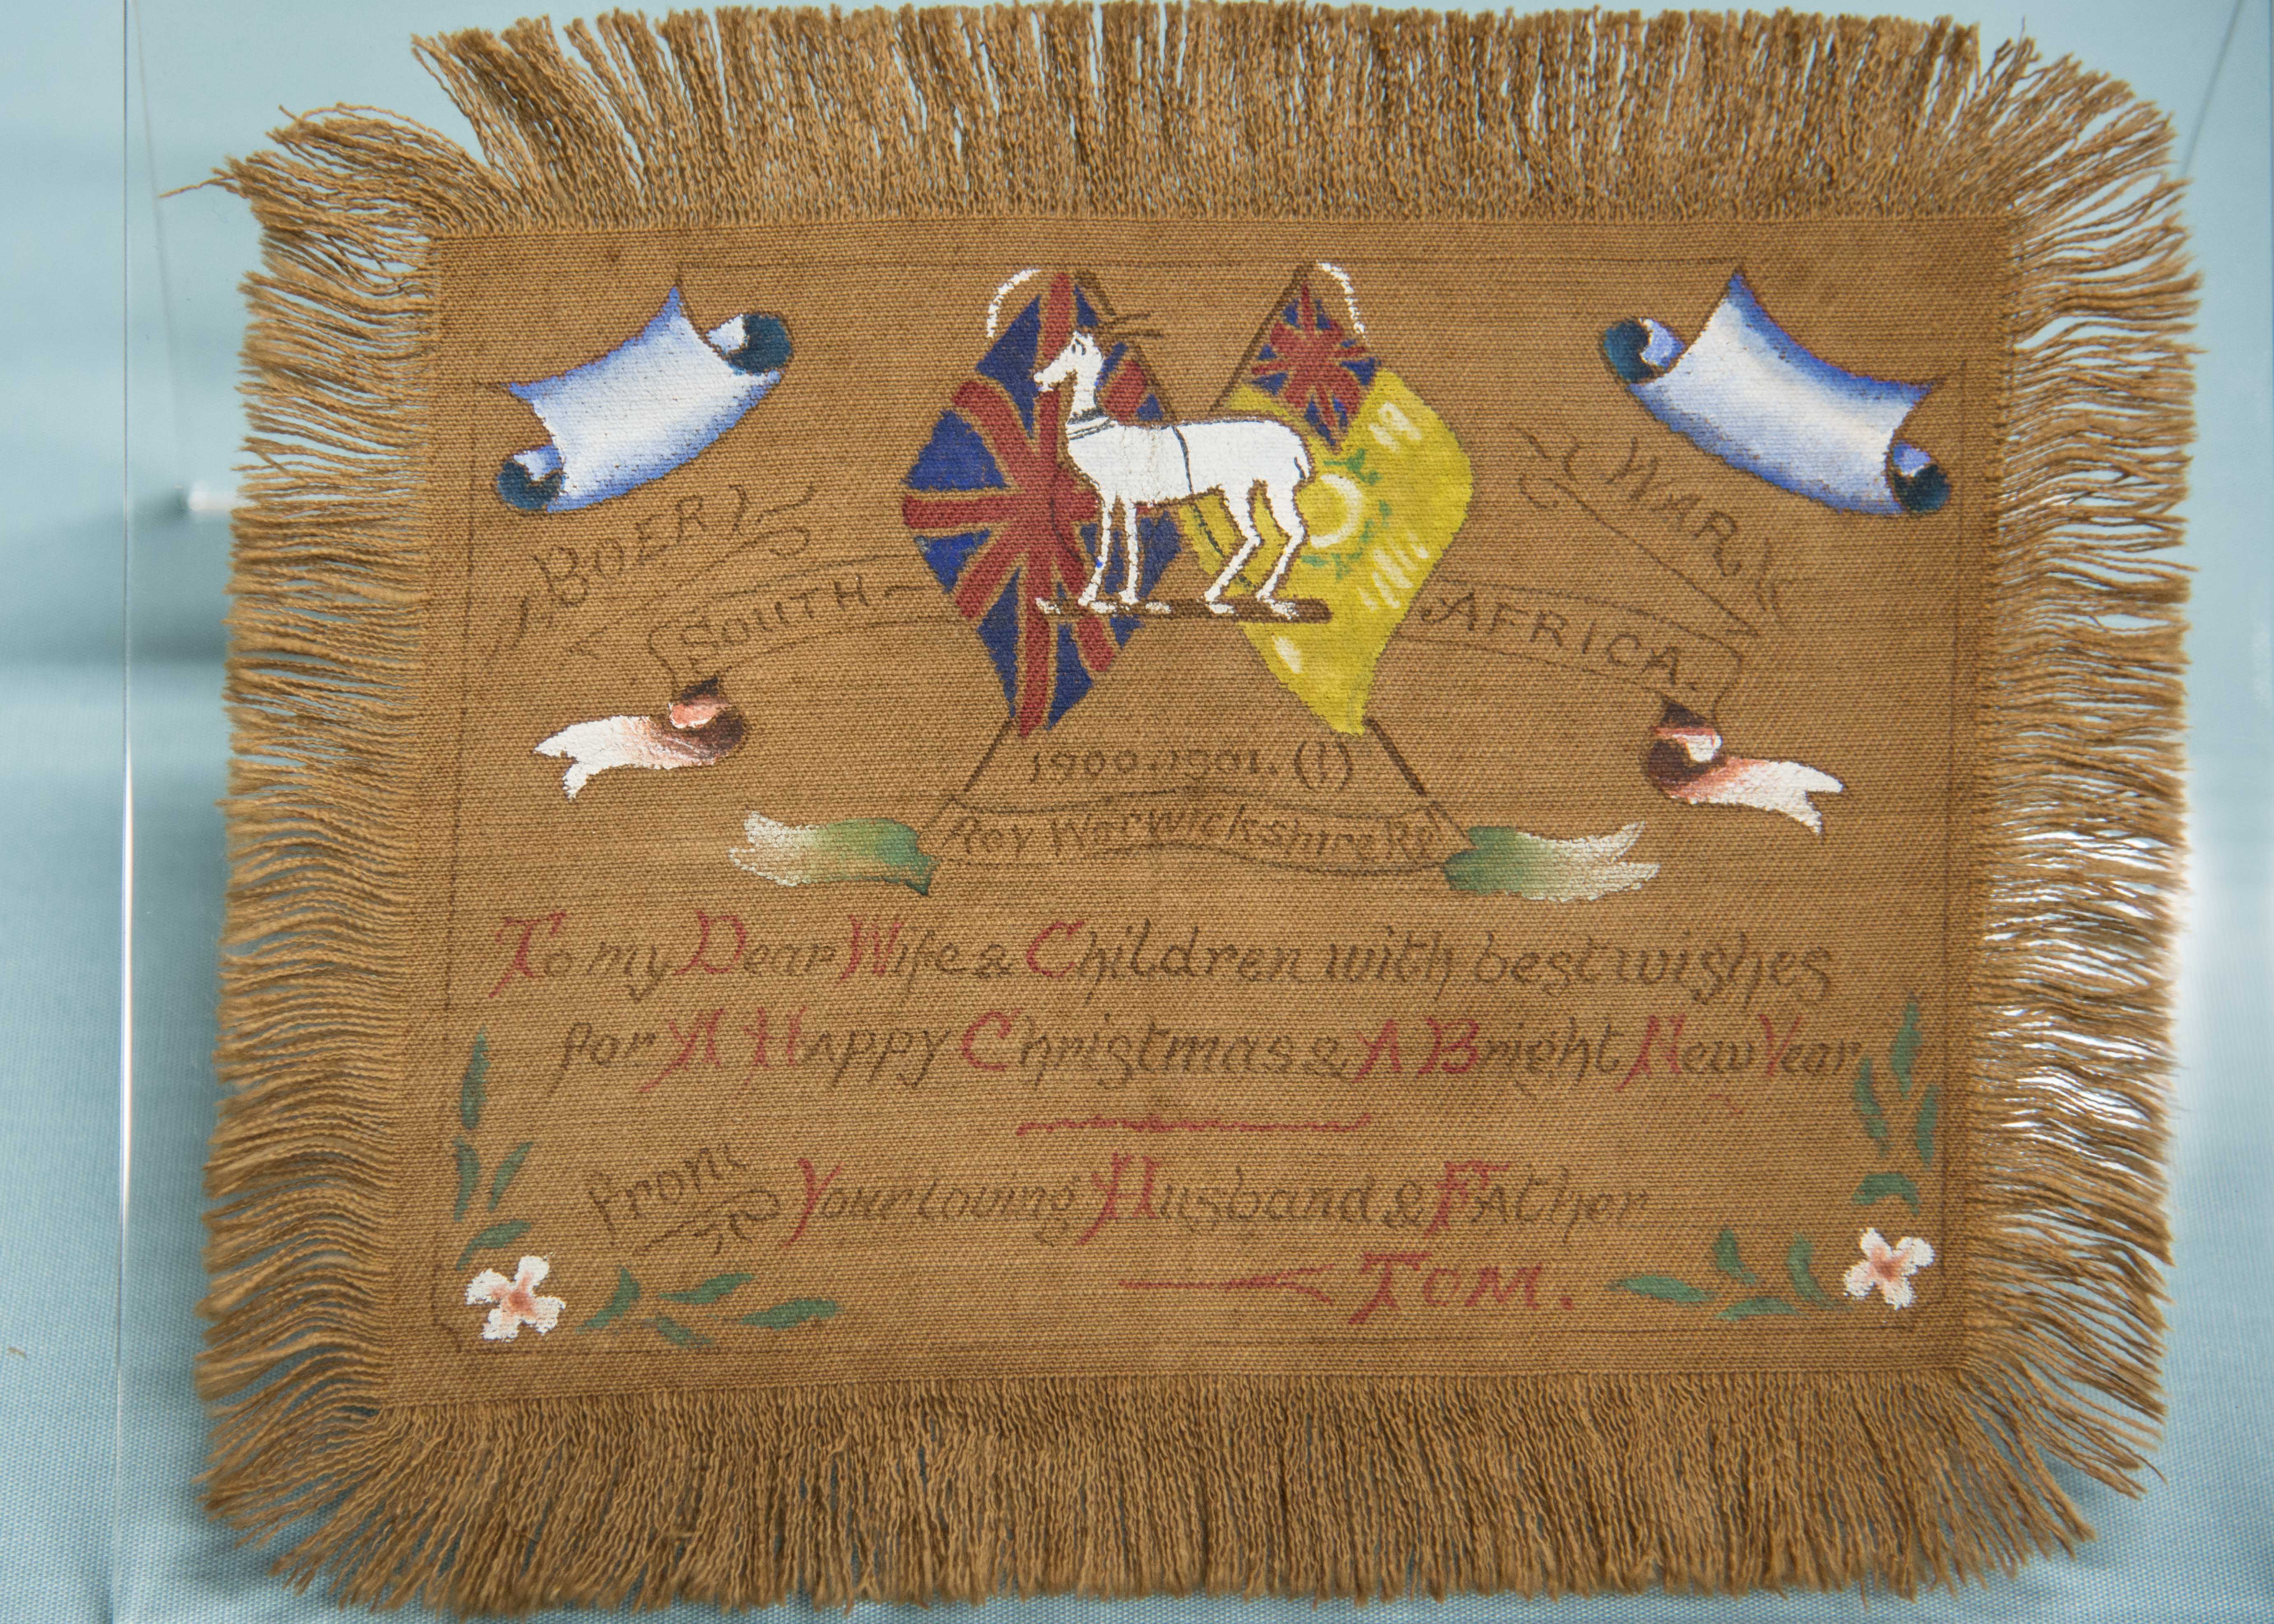 BOER WAR
SOUTH AFRICA.
1900.1901. (!)
Roy Warwickshire Rg
To my Dear Wife & Children with best wishes
for A Happy Christmas & A Bright New Year
from Your loving Husband & FAther
TOM.